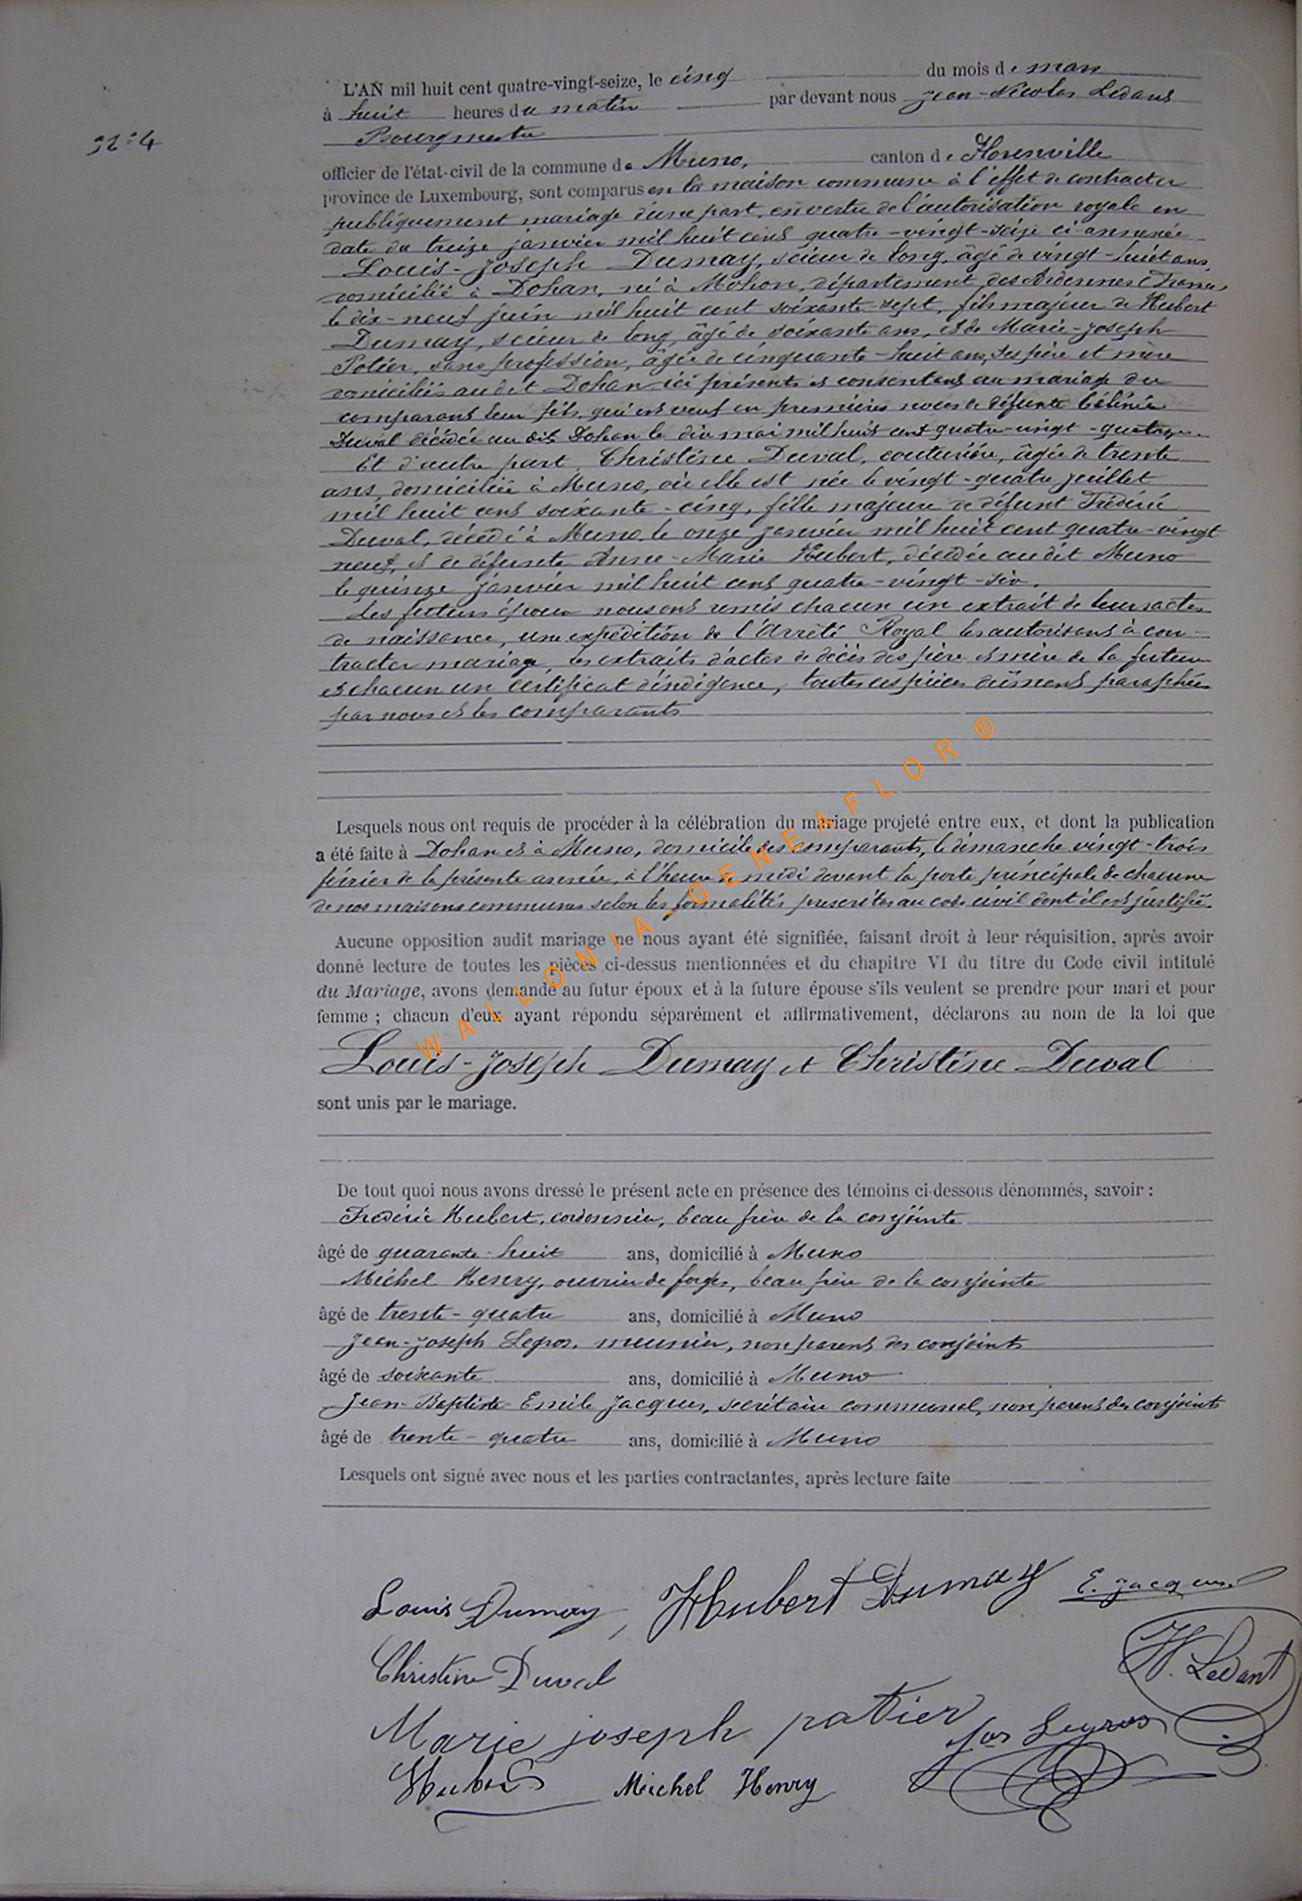 L'AN mil huit cent quatre-vingt-seize, le cinq du mois de mars
à huit heures du matin par devant nous Jean-Nicolas Ledant
Bourgmestre
N° 4
officier de l'état-civil de la commune de Muno, canton de Florenville
province de Luxembourg, sont comparus en la maison commune à l'effet de contracter
publiquement mariage d'une part, en vertu de l'autorisation royale en
date du treize janvier mil huit cent quatre-vingt-seize ci annexée
Louis-Joseph Dumay, scieur de long, âgé de vingt-huit ans,
domicilié à Dohan, né à Mohon, département des Ardennes (France)
le dix-neuf juin mil huit cent soixante-sept, fils majeur de Hubert
Dumay, scieur de long, âgé de soixante ans, et de Marie-Joseph
Potier, sans profession, âgée de cinquante-huit ans, ses père et mère
domiciliés au dit Dohan ici présents et consentant au mariage du
comparant leur fils, qui est veuf en premières noces de défunte Célinie
Duval décédée au dit Dohan le dix mai mil huit cent quatre-vingt-quatorze.
Et d'autre part, Christine Duval, couturière, âgée de trente
ans, domiciliée à Muno, où elle est née le vingt-quatre juillet
mil huit cent soixante-cinq, fille majeure de défunt Frédéric
Duval, décédé à Muno, le onze janvier mil huit cent quatre-vingt
neuf, et de défunte Anne-Marie Hubert, décédée au dit Muno
le quinze janvier mil huit cent quatre-vingt-six.
Les futurs époux nous ont remis chacun un extrait de leurs actes
de naissance, une expédition de l'Arrêté Royal les autorisant à con-
tracter mariage, les extraits d'actes de décès des père et mère de la future
et chacun un certificat d'indigence, toutes ces pièces dûment paraphées
par nous et les comparants
Lesquels nous ont requis de procéder à la célébration du mariage projeté entre eux, et dont la publication
a été faite à Dohan et à Muno, domicile des comparants, le dimanche vingt-trois
février de la présente année, à l'heure de midi devant la porte principale de chacune
de nos maisons communes selon les formalités prescrites au code civil dont il est justifié.
Aucune opposition audit mariage ne nous ayant été signifiée, faisant droit à leur réquisition, après avoir
donné lecture de toutes les pièces ci-dessus mentionnées et du chapitre VI du titre du Code civil intitulé
du Mariage, avons demandé au futur époux et à la future épouse s'ils veulent se prendre pour mari et pour
femme ; chacun d'eux ayant répondu séparément et affirmativement, déclarons au nom de la loi que
Louis-Joseph Dumay et Christine Duval
sont unis par le mariage.
De tout quoi nous avons dressé le présent acte en présence des témoins ci-dessous dénommés, savoir :
Frédéric Hubert, cordonnier, beau frère de la conjointe
âgé de quarante-huit ans, domicilié à Muno
Michel Henry, ouvrier de forges, beau frère de la conjointe
âgé de trente-quatre ans, domicilié à Muno
Jean-Joseph Legros, meunier, non parent des conjoints
âgé de soixante ans, domicilié à Muno
Jean-Baptiste Emile Jacques, secrétaire communal, non parent des conjoints
âgé de trente-quatre ans, domicilié à Muno
Lesquels ont signé avec nous et les parties contractantes, après lecture faite
Louis Dumay, Hubert Dumay E. Jacques
Christine Duval N. Ledant
Marie joseph patier Jos Legros
Hubert Michel Henry
WALLONIA-GENEAFLOR ®